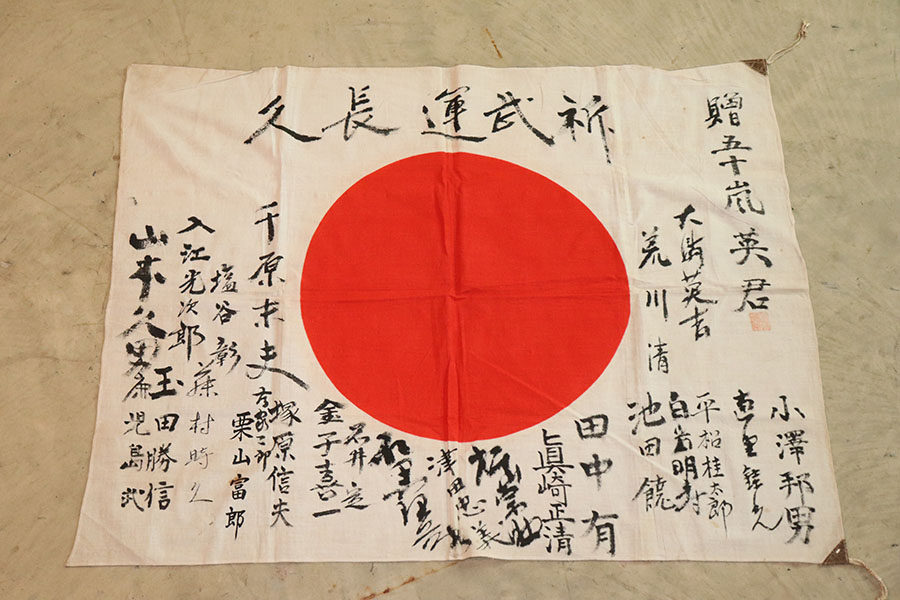 祈武運長久
贈五十嵐英君
大海英吉
荒川清
小澤邦男
平松桂太郎
白岩明
池田饒
田中有
眞崎正清
浅田忠義
石井定
金子喜一
塚原信夫
千原末夫
栗山富郎
塩谷彰
藤村時久
入江光次郎
玉田勝信
山本久男
児島武